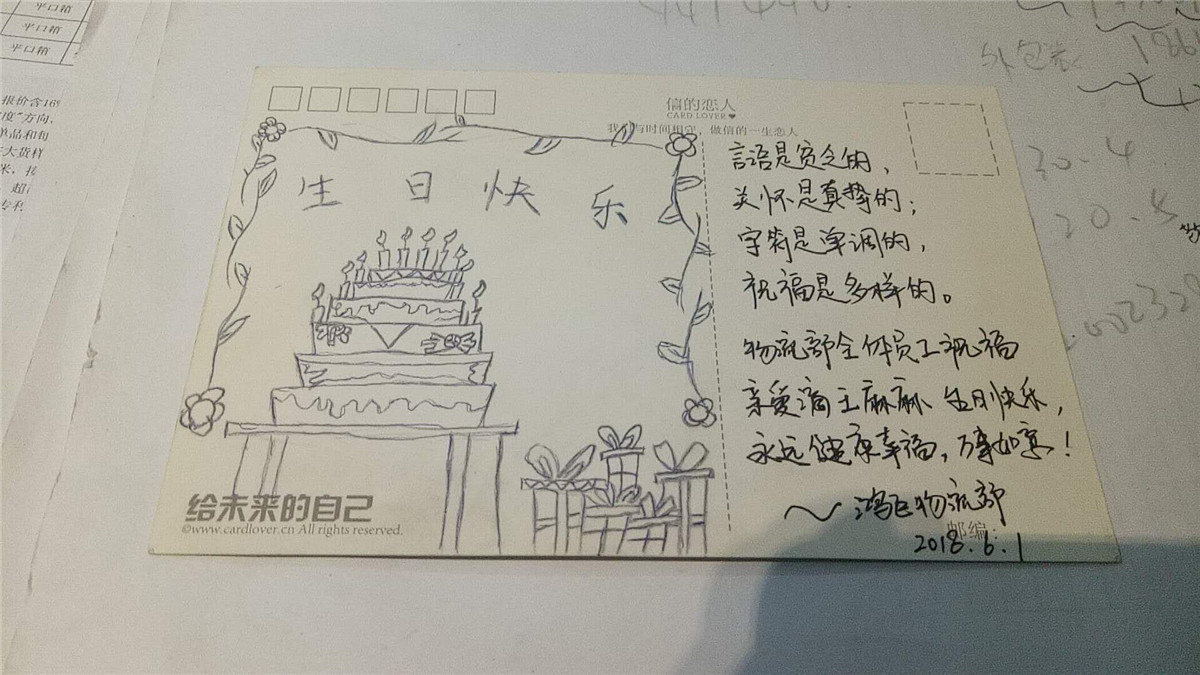 平口箱
平口箱
报价含16%
度”方向，
单品和每
E大货样
超
专利
外包装
20.4
20.5
信的恋人
CARD LOVER
我们与时间相守，做信的一生恋人
生日快乐
言语是贫乏的，
关怀是真挚的；
字符是单调的，
祝福是多样的。
物流部全体员工祝福
亲爱滴王麻麻 生日快乐，
永远健康幸福，万事如意！
～鸿巨物流部
邮编：
2018.6.1
给未来的自己
©www.cardlover.cn All rights reserved.